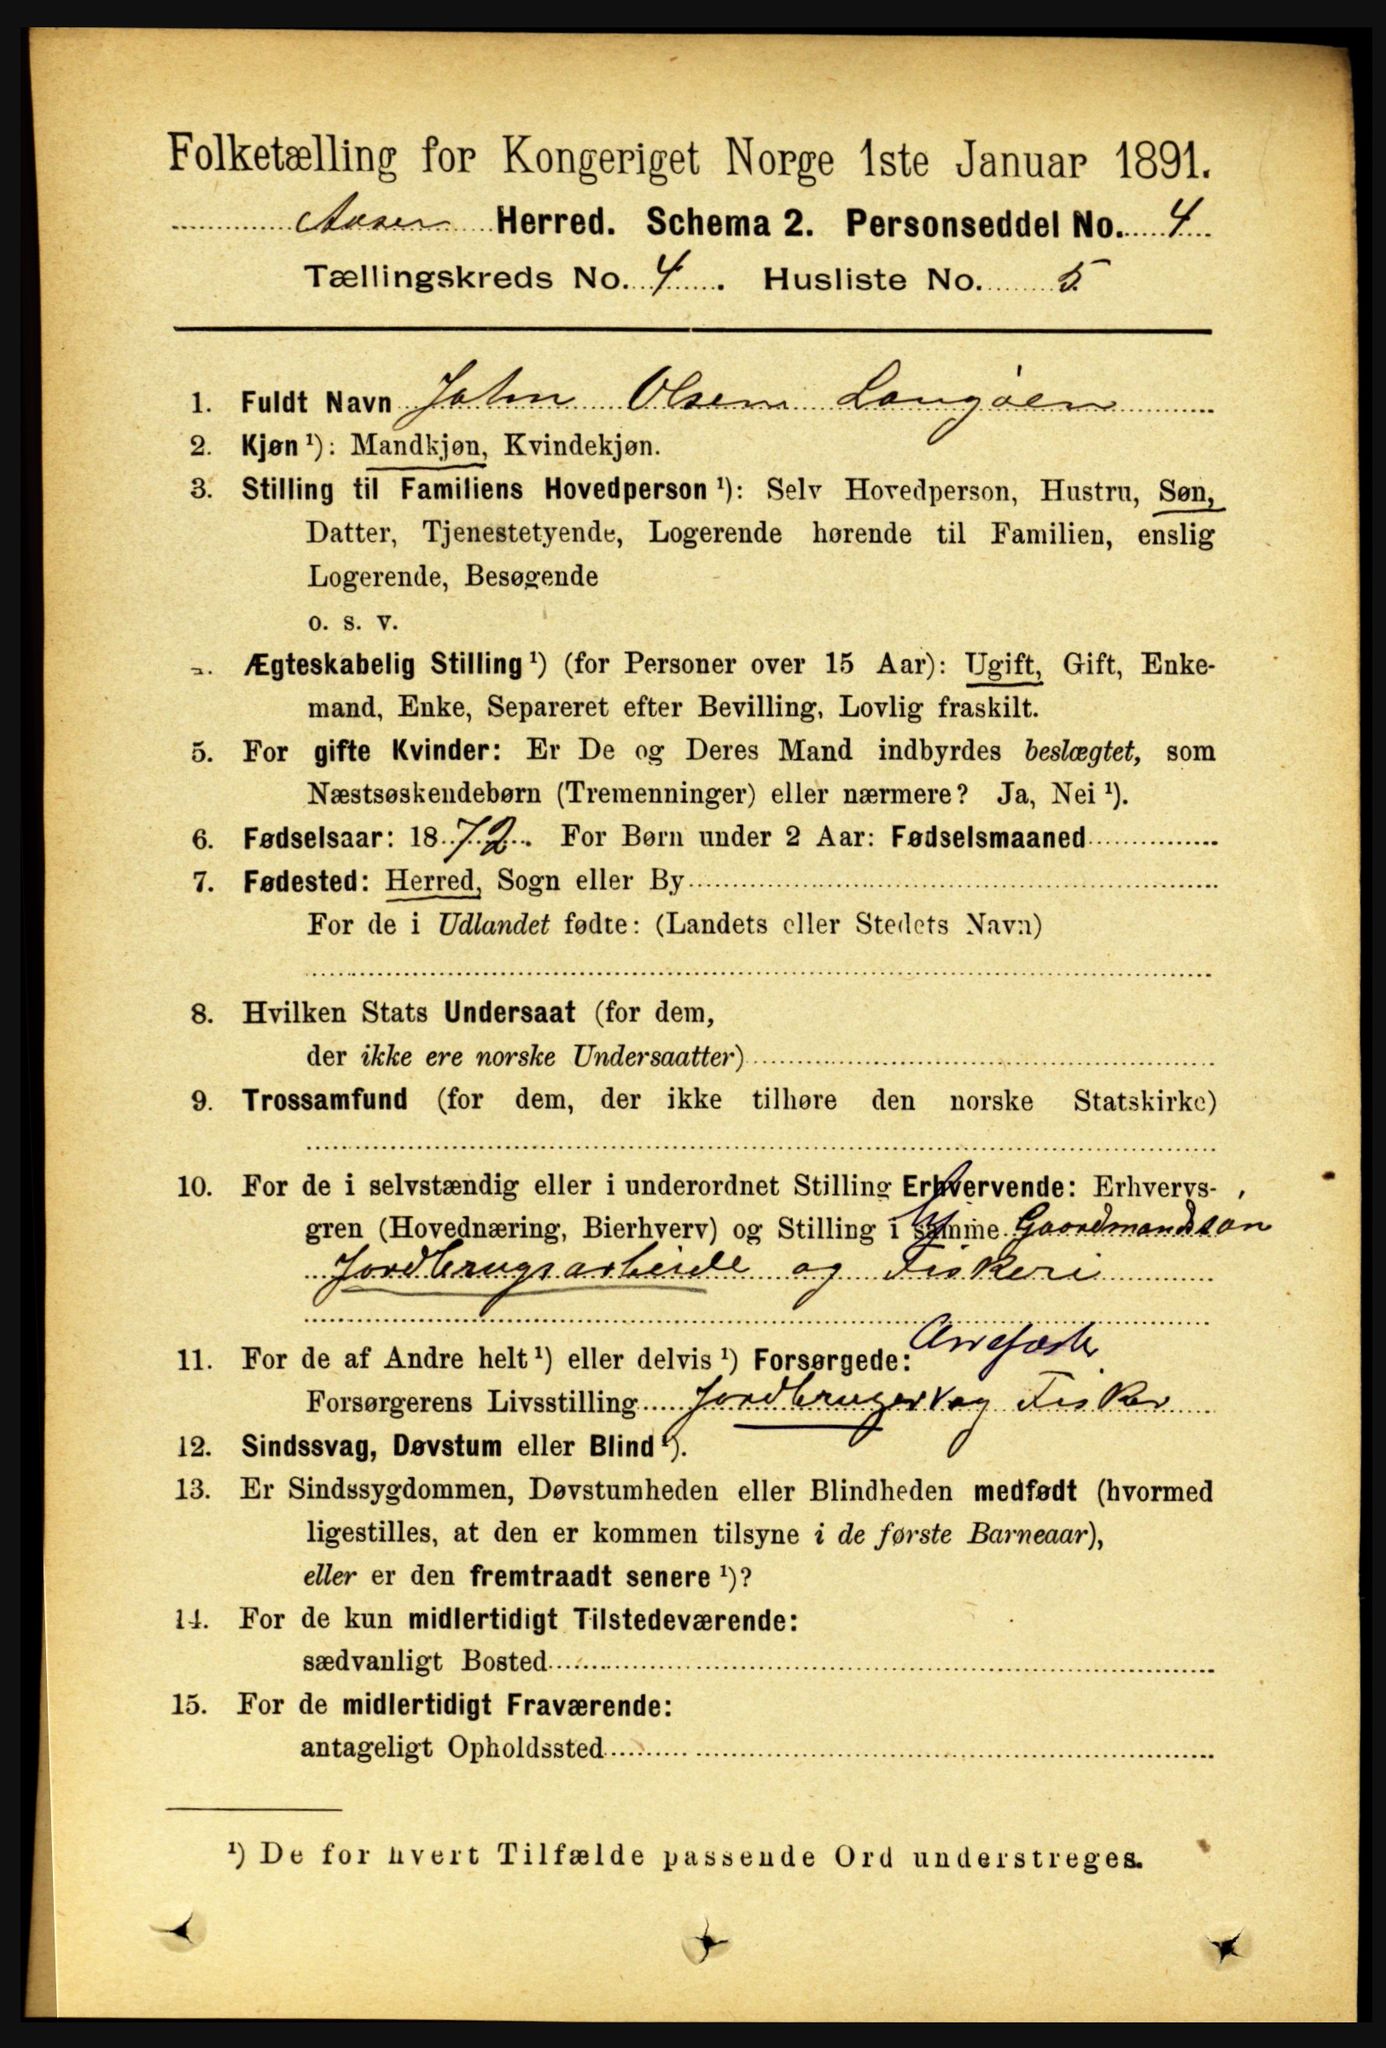 Folketælling for Kongeriget Norge 1ste Januar 1891.
Herred. Schema 2. Personseddel No. 4
Tællingskreds No. 4. Husliste No. 5
1. Fuldt Navn John Olsen Langøen
2. Kjøn ¹): Mandkjøn, Kvindekjøn.
3. Stilling til Familiens Hovedperson ¹): Selv Hovedperson, Hustru, Søn,
Datter, Tjenestetyende, Logerende hørende til Familien, enslig
Logerende, Besøgende
o. s. v.
Ægteskabelig Stilling ¹) (for Personer over 15 Aar): Ugift, Gift, Enke-
mand, Enke, Separeret efter Bevilling, Lovlig fraskilt.
5. For gifte Kvinder: Er De og Deres Mand indbyrdes beslægtet, som
Næstsøskendebørn (Tremenninger) eller nærmere? Ja, Nei ¹).
6. Fødselsaar: 1872. For Børn under 2 Aar: Fødselsmaaned
7. Fødested: Herred, Sogn eller By
For de i Udlandet fødte: (Landets eller Stedets Navn)
8. Hvilken Stats Undersaat (for dem,
der ikke ere norske Undersaatter)
9. Trossamfund (for dem, der ikke tilhøre den norske Statskirke)
10. For de i selvstændig eller i underordnet Stilling Erhvervende: Erhvervs-
gren (Hovednæring, Bierhverv) og Stilling i samme Gaardmandssøn
Jordbrugsarbeide og Fiskeri
11. For de af Andre helt ¹) eller delvis ¹) Forsørgede:
Forsørgerens Livsstilling Jordbruger og Fisker
12. Sindssvag, Døvstum eller Blind ¹).
13. Er Sindssygdommen, Døvstumheden eller Blindheden medfødt (hvormed
ligestilles, at den er kommen tilsyne i de første Barneaar),
eller er den fremtraadt senere ¹)?
14. For de kun midlertidigt Tilstedeværende:
sædvanligt Bosted
15. For de midlertidigt Fraværende:
antageligt Opholdssted
¹) De for hvert Tilfælde passende Ord understreges.